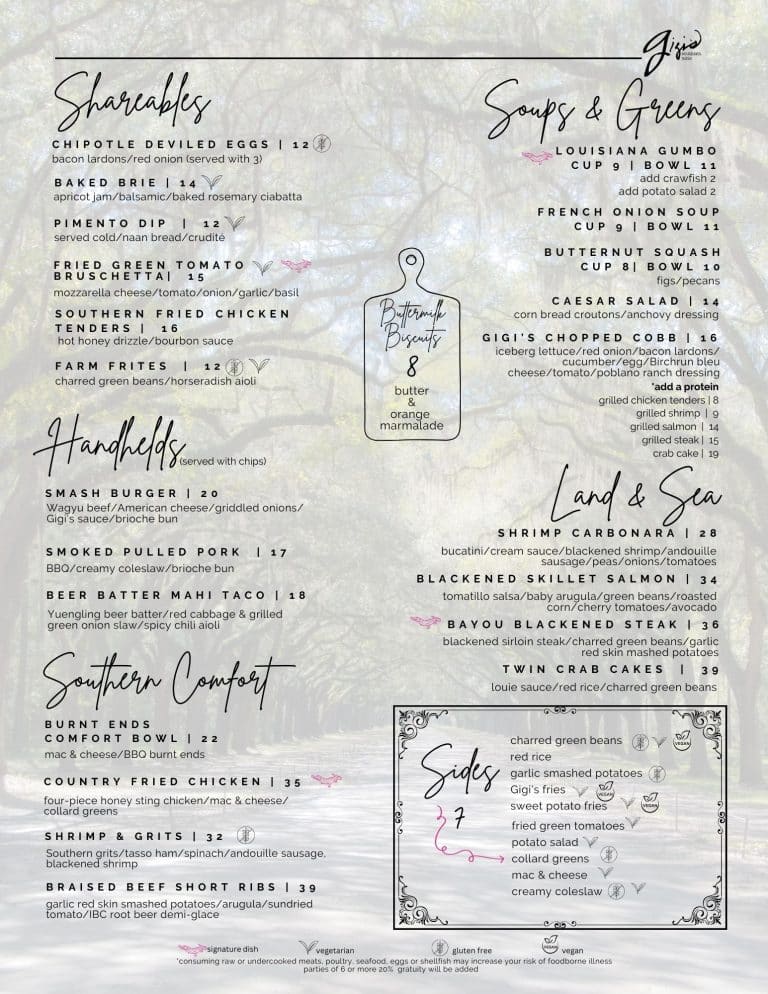 gigi's
Shareables
CHIPOTLE DEVILED EGGS | 12
bacon lardons/red onion (served with 3)
BAKED BRIE | 14
apricot jam/balsamic/baked rosemary ciabatta
PIMENTO DIP | 12
served cold/naan bread/crudité
FRIED GREEN TOMATO
BRUSCHETTA| 15
mozzarella cheese/tomato/onion/garlic/basil
SOUTHERN FRIED CHICKEN
TENDERS | 16
hot honey drizzle/bourbon sauce
FARM FRITES | 12
charred green beans/horseradish aioli
Handhelds (served with chips)
SMASH BURGER | 20
Wagyu beef/American cheese/griddled onions/
Gigi's sauce/brioche bun
SMOKED PULLED PORK | 17
BBQ/creamy coleslaw/brioche bun
BEER BATTER MAHI TACO | 18
Yuengling beer batter/red cabbage & grilled
green onion slaw/spicy chili aioli
Southern Comfort
BURNT ENDS
COMFORT BOWL | 22
mac & cheese/BBQ burnt ends
COUNTRY FRIED CHICKEN | 35
four-piece honey sting chicken/mac & cheese/
collard greens
SHRIMP & GRITS | 32
Southern grits/tasso ham/spinach/andouille sausage,
blackened shrimp
BRAISED BEEF SHORT RIBS | 39
garlic red skin smashed potatoes/arugula/sundried
tomato/IBC root beer demi-glace
Buttermilk
Biscuits
8
butter
&
orange
marmalade
Soups & Greens
LOUISIANA GUMBO
CUP 9 | BOWL 11
add crawfish 2
add potato salad 2
FRENCH ONION SOUP
CUP 9 | BOWL 11
BUTTERNUT SQUASH
CUP 8| BOWL 10
figs/pecans
CAESAR SALAD | 14
corn bread croutons/anchovy dressing
GIGI'S CHOPPED COBB | 16
iceberg lettuce/red onion/bacon lardons/
cucumber/egg/Birchrun bleu
cheese/tomato/poblano ranch dressing
*add a protein
grilled chicken tenders | 8
grilled shrimp | 9
grilled salmon | 14
grilled steak | 15
crab cake | 19
Land & Sea
SHRIMP CARBONARA | 28
bucatini/cream sauce/blackened shrimp/andouille
sausage/peas/onions/tomatoes
BLACKENED SKILLET SALMON | 34
tomatillo salsa/baby arugula/green beans/roasted
corn/cherry tomatoes/avocado
BAYOU BLACKENED STEAK | 36
blackened sirloin steak/charred green beans/garlic
red skin mashed potatoes
TWIN CRAB CAKES | 39
louie sauce/red rice/charred green beans
Sides
7
charred green beans VEGAN
red rice
garlic smashed potatoes
Gigi's fries VEGAN
sweet potato fries VEGAN
fried green tomatoes
potato salad
collard greens
mac & cheese
creamy coleslaw
signature dish vegetarian gluten free VEGAN vegan
*consuming raw or undercooked meats, poultry, seafood, eggs or shellfish may increase your risk of foodborne illness
parties of 6 or more 20% gratuity will be added